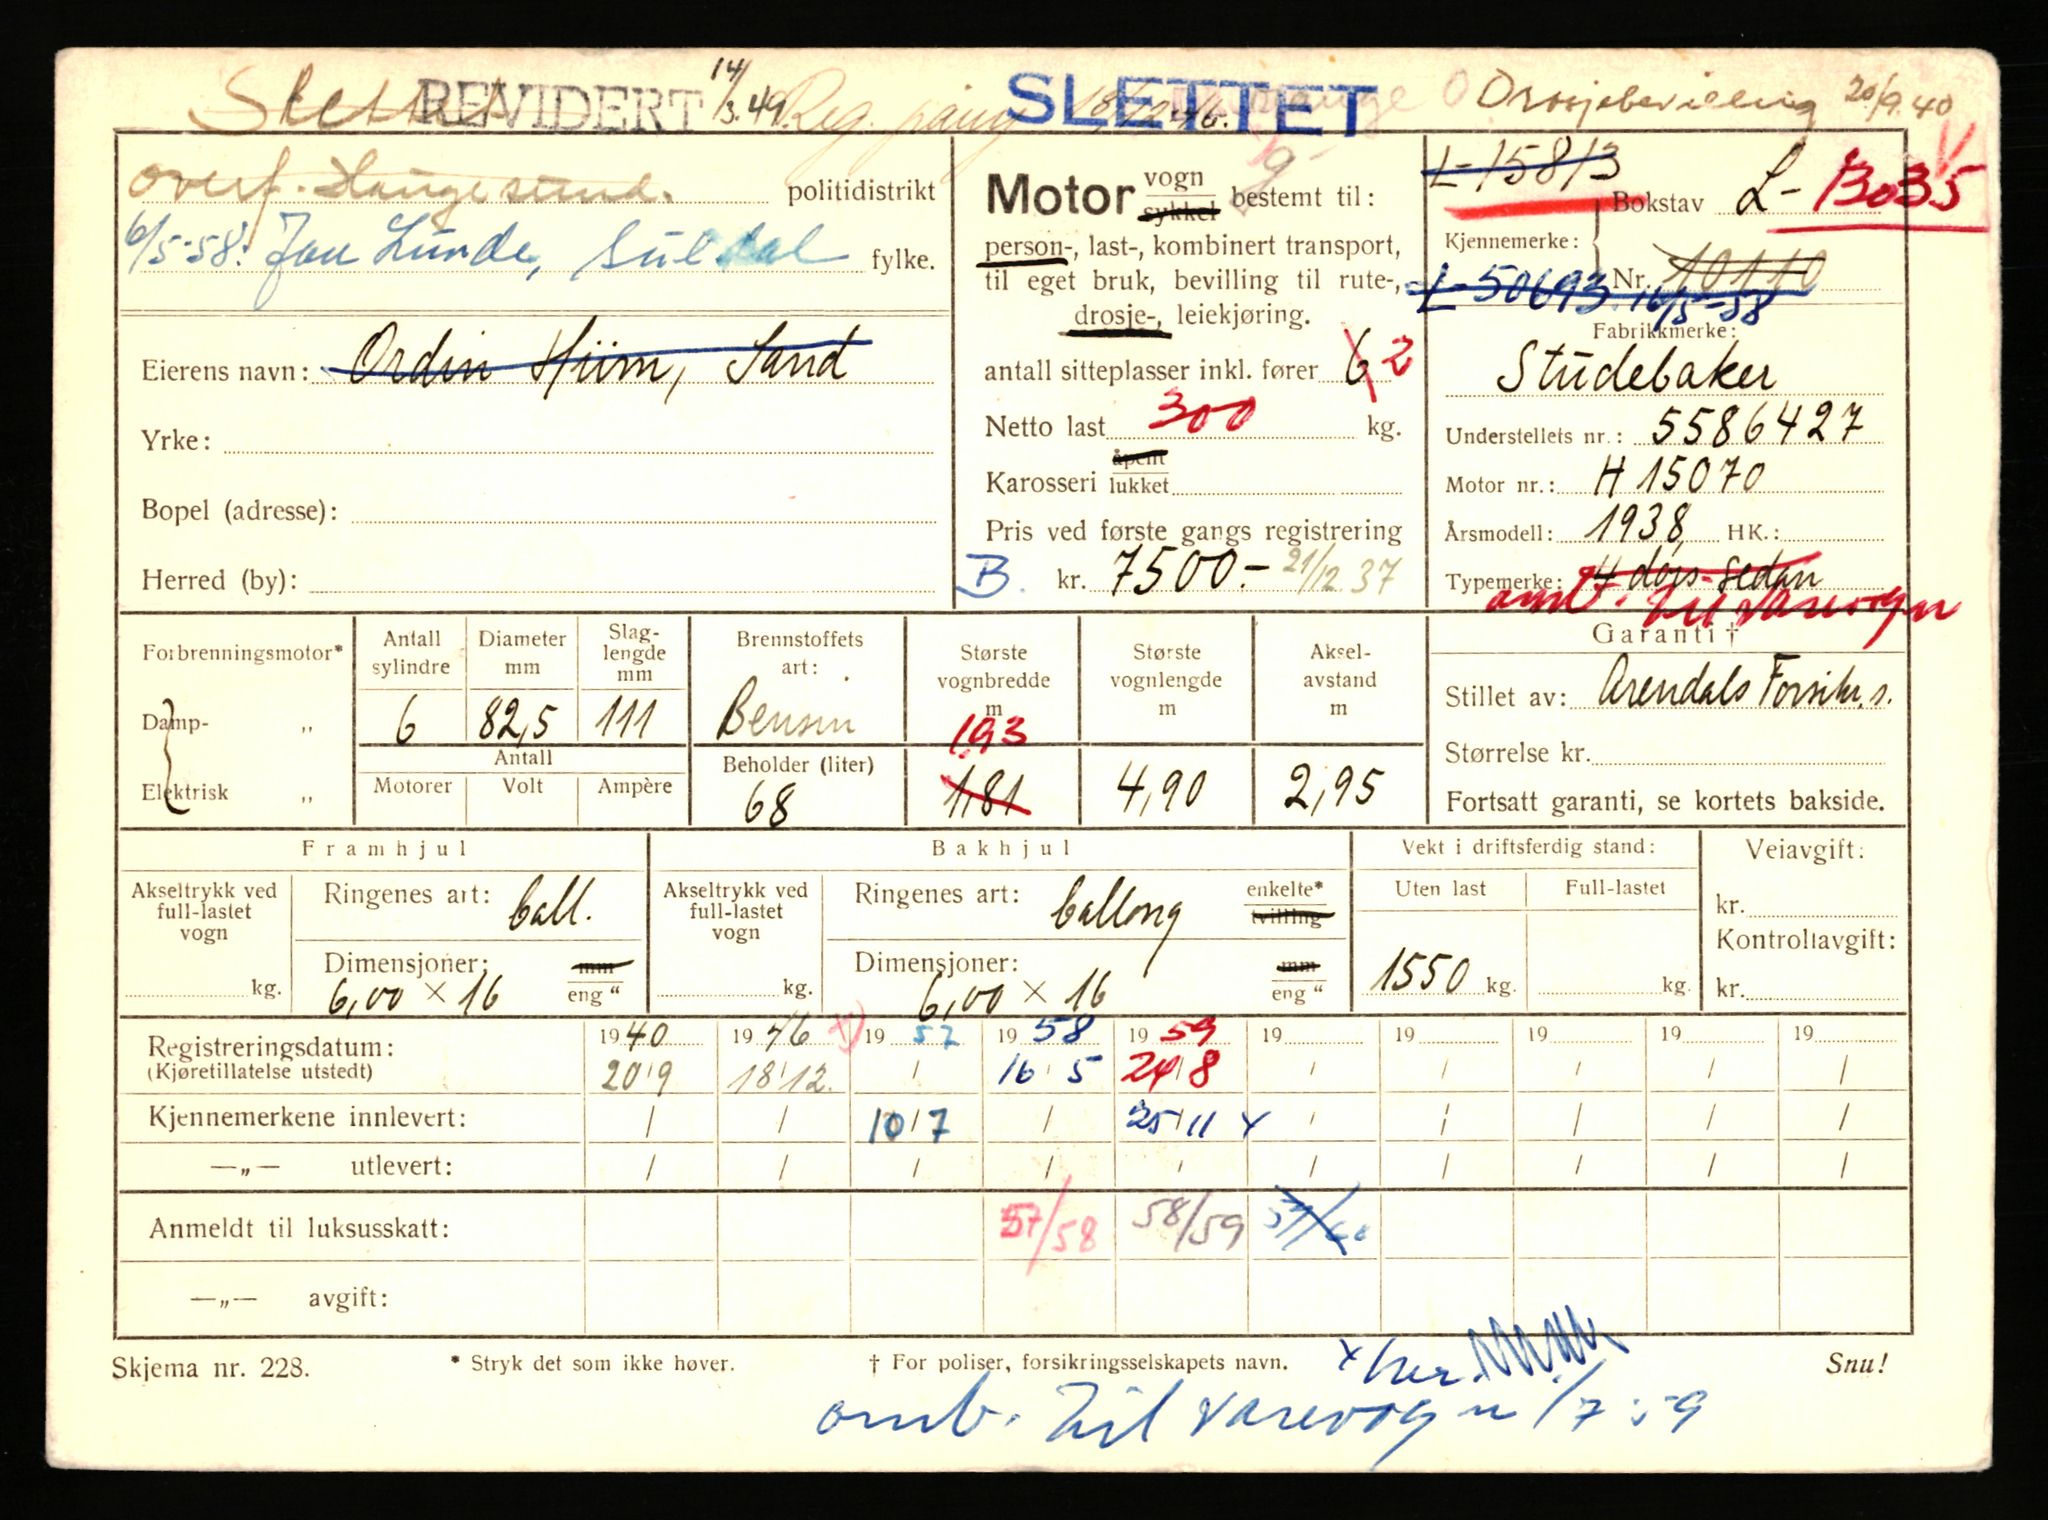 Slettet REVIDERT 14/3.49. Reg. 18/12.46. SLETTET Drosjebevilling 20/9.40
overf. Haugesund. politidistrikt
6/5-58: Jon Lunde, Suldal fylke.
Eierens navn: Ordin Hiim, Sand
Yrke:
Bopel (adresse):
Herred (by):
Motor vogn sykkel bestemt til:
person-, last-, kombinert transport,
til eget bruk, bevilling til rute-,
drosje-, leiekjøring.
antall sitteplasser inkl. fører 6 2
Netto last 300 kg.
Karosseri åpent lukket
Pris ved første gangs registrering
B. kr. 7500.- 21/12.37
L-15813
Bokstav L-13035
Kjennemerke:
Nr. 10110
L-50693. 16/5-58
Fabrikkmerke:
Studebaker
Understellets nr.: 5586427
Motor nr.: H 15070
Årsmodell: 1938, HK.:
Typemerke: 4 dørs sedan
omb. til varevogn
Garanti †
Stillet av: Arendals Forsikr.s.
Størrelse kr.
Fortsatt garanti, se kortets bakside.
Forbrenningsmotor*
Damp- „
Elektrisk „
Antall sylindre
6
Diameter mm
82,5
Slag-lengde mm
111
Antall
Motorer Volt Ampère
Brennstoffets art:
Bensin
Beholder (liter)
68
Største vognbredde m
1,93
1,81
Største vognlengde m
4,90
Aksel-avstand m
2,95
Framhjul
Akseltrykk ved full-lastet vogn
kg.
Ringenes art: ball.
Dimensjoner: mm
6,00 × 16 eng "
Bakhjul
Akseltrykk ved full-lastet vogn
kg.
Ringenes art: ballong enkelte* tvilling
Dimensjoner: mm
6,00 × 16 eng "
Vekt i driftsferdig stand:
Uten last Full-lastet
1550 kg. kg.
Veiavgift:
kr.
Kontrollavgift:
kr.
Registreringsdatum: 1940 1946 1957 1958 1959 19 19 19 19 19
(Kjøretillatelse utstedt) 20/9 18/12. / 16/5 24/8 / / / / /
Kjennemerkene innlevert: / / 10/7 / 25/11 x / / / / /
—„— utlevert: / / / / / / / / / /
Anmeldt til luksusskatt: 57/58 58/59
—„— avgift:
Skjema nr. 228. * Stryk det som ikke høver. † For poliser, forsikringsselskapets navn. x her. Snu!
omb. til varevogn 1/7-59